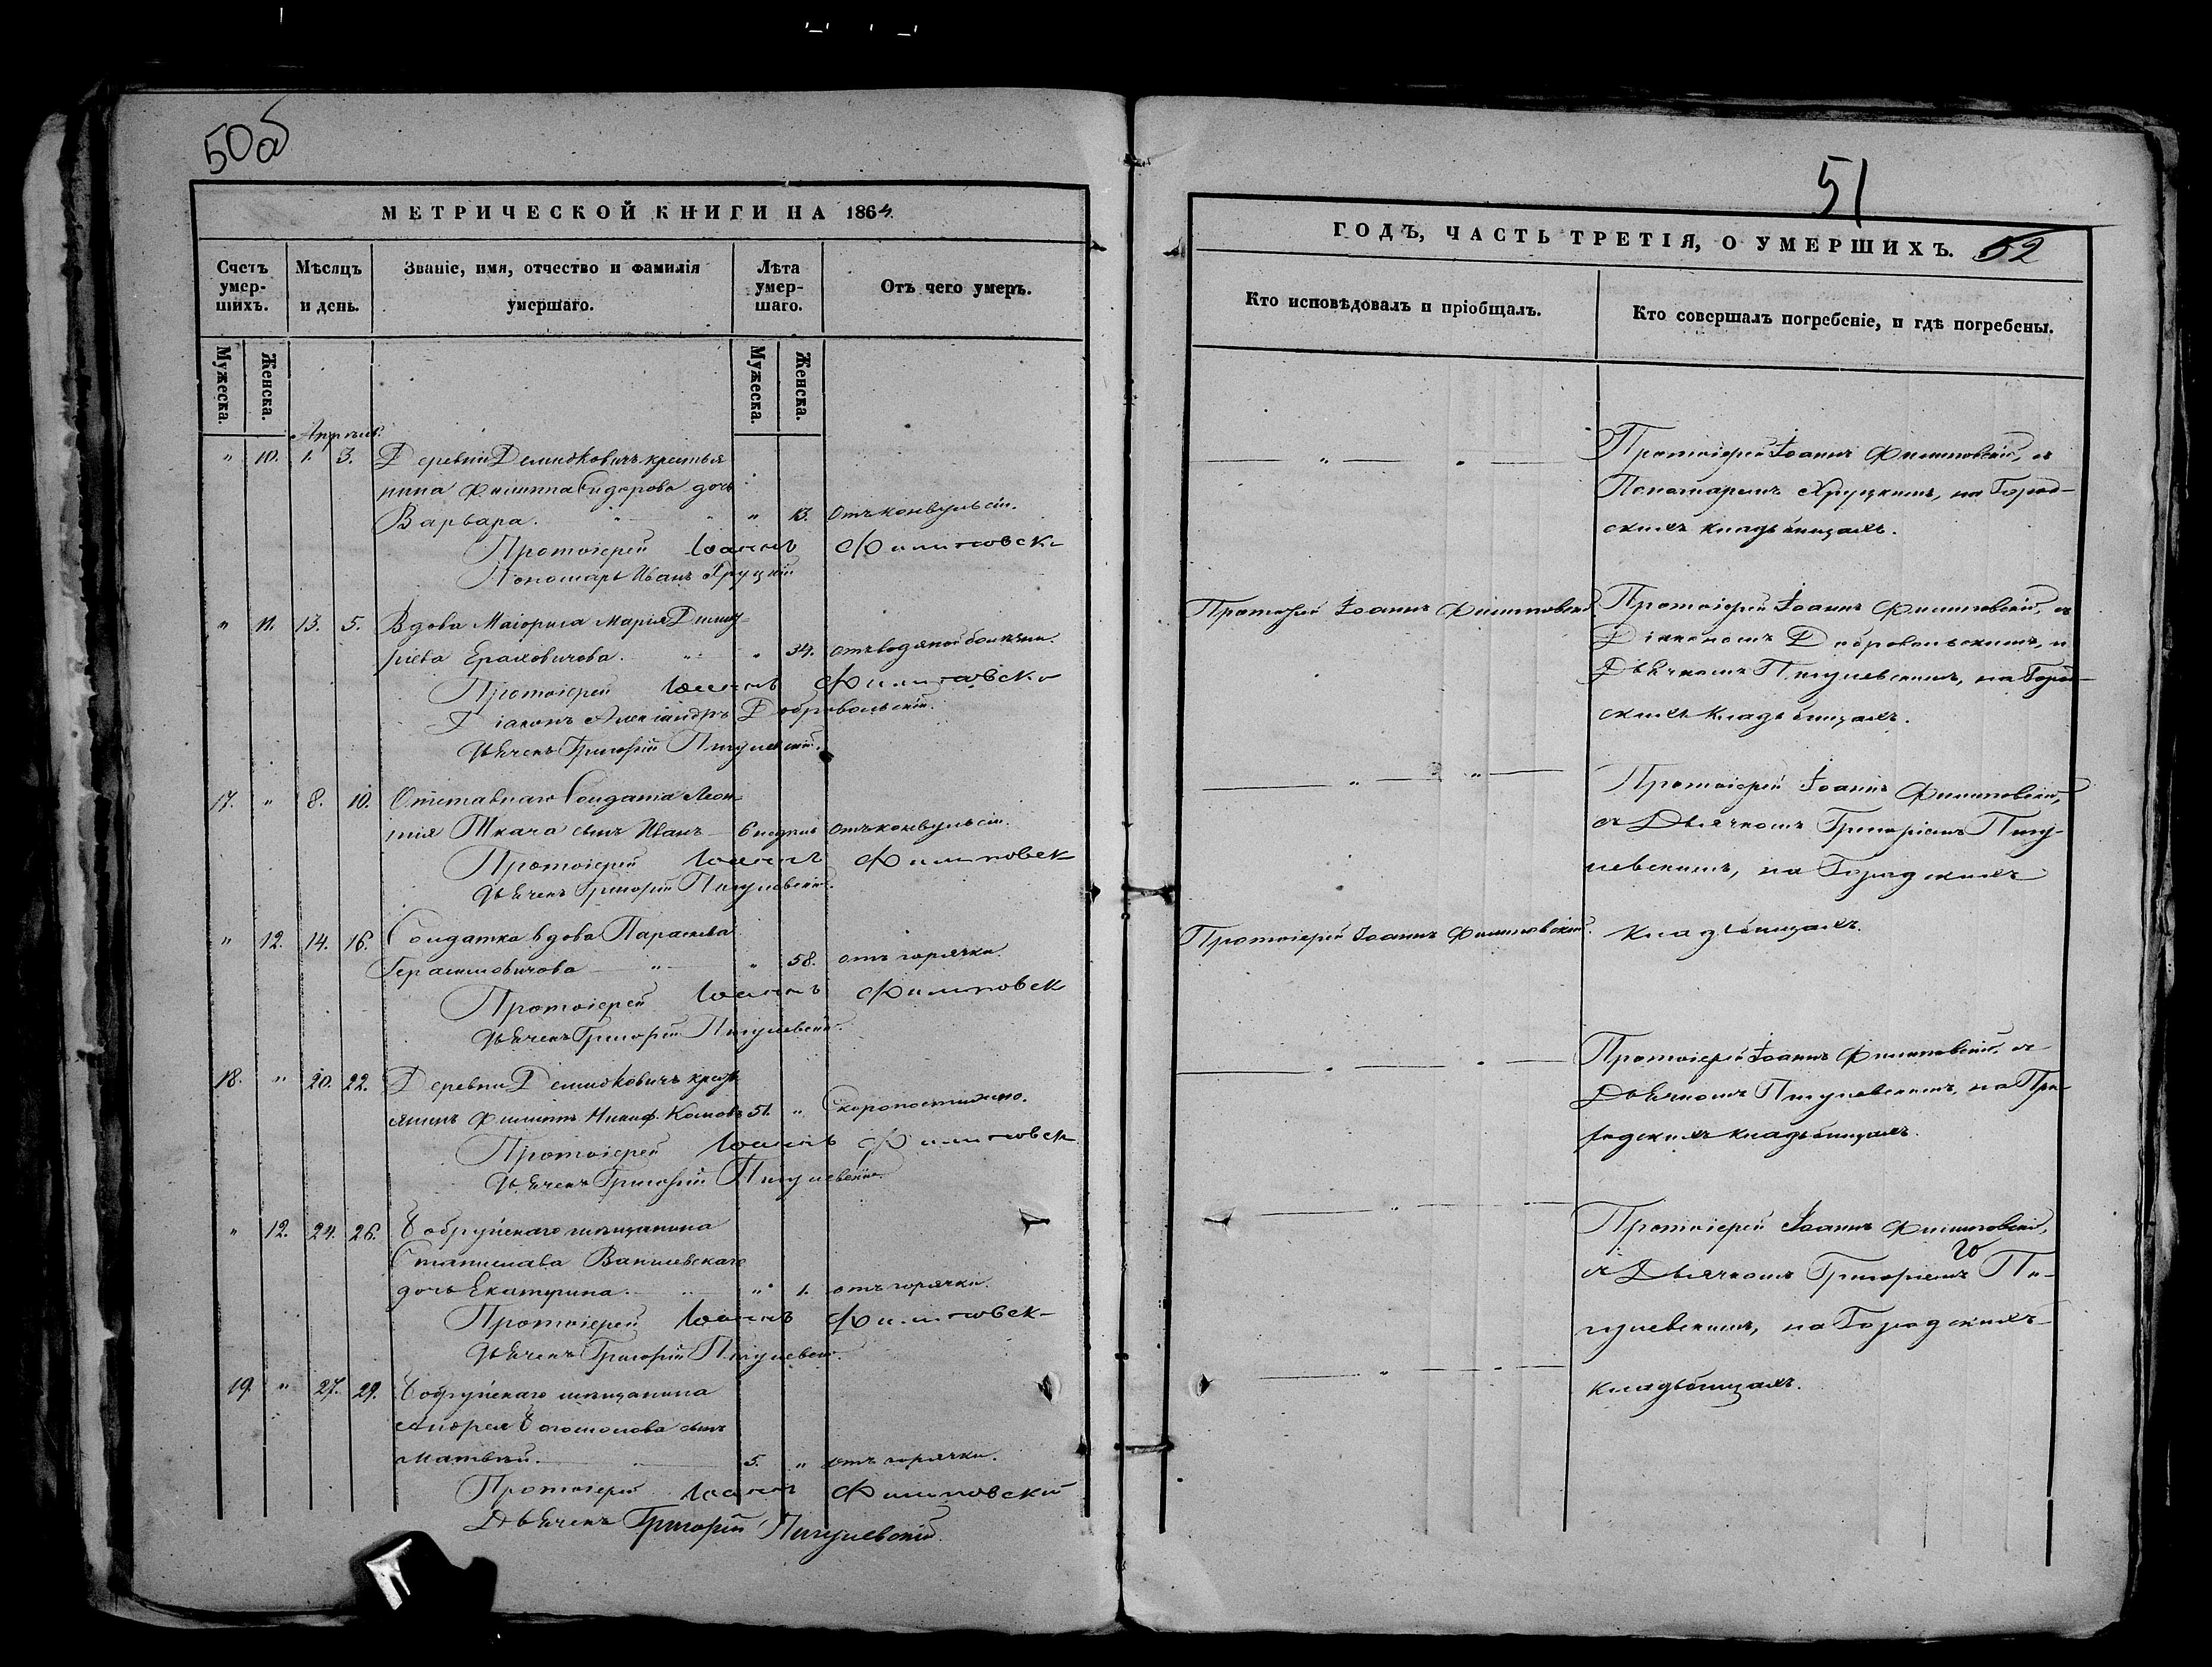 50об
МЕТРИЧЕСКОЙ КНИГИ НА 1864
Счетъ умер-шихъ.
Мѣсяцъ и день.
Званіе, имя, отчество и фамилія умершаго.
Лѣта умер-шаго.
Отъ чего умеръ.
Мужеска. Женска. Мужеска. Женска.
Апрѣль.
" 10. 1. 3. Деревни Демидковичъ крестья
нина Филиппа Сидорова дочь
Варвара. " 13. отъ конвульсіи.
Протоіерей Іоаннъ Филиповск
Пономарь Иванъ Хруцкій
" 11. 13. 5. Вдова Маіорша Марія Дмит-
ріева Ераковичова. " 34. отъ водяной болѣзни.
Протоіерей Іоаннъ Филиповск
Діаконъ Александръ Добровольскій.
Дьячекъ Григорій Пигулевскій.
17. " 8. 10. Отставнаго Солдата Леон
тія Ткача сынъ Иванъ 6 недѣль отъ конвульсіи.
Протоіерей Іоаннъ Филиповск
Дьячекъ Григорій Пигулевскій.
" 12. 14. 16. Солдатка вдова Параскева
Герасимовичова " " 58. отъ горячки.
Протоіерей Іоаннъ Филиповск
Дьячекъ Григорій Пигулевскій.
18. " 20. 22. Деревни Демидковичъ крест
янинъ Филиппъ Никиф. 51. " Скоропостижно.
Протоіерей Іоаннъ Филиповск
Дьячекъ Григорій Пигулевскій.
" 12. 24. 26. Бобруйскаго мѣщанина
Станислава
дочь Екатерина. " 1. отъ горячки.
Протоіерей Іоаннъ Филиповск
Дьячекъ Григорій Пигулевск.
19. " 27. 29. Бобруйскаго мѣщанина
Андрея Богомолова сынъ
Матвѣй. " 5. " отъ горячки.
Протоіерей Іоаннъ Филиповскій
Дьячекъ Григорій Пигулевскій.
51
ГОДЪ, ЧАСТЬ ТРЕТІЯ, О УМЕРШИХЪ. 52
Кто исповѣдовалъ и пріобщалъ.
Кто совершалъ погребеніе, и гдѣ погребены.
Протоіерей Іоаннъ Филиповскій, съ
Пономаремъ Хруцкимъ, на Город-
скихъ кладбищахъ.
Протоіерей Іоаннъ Филиповскій. Протоіерей Іоаннъ Филиповскій, съ
Діакономъ Добровольскимъ, и
Дьячкомъ Пигулевскимъ, на Город-
скихъ кладбищахъ.
Протоіерей Іоаннъ Филиповскій,
съ Дьячкомъ Григоріемъ Пигу-
левскимъ, на Городскихъ
Протоіерей Іоаннъ Филиповскій. кладбищахъ.
Протоіерей Іоаннъ Филиповскій, съ
Дьячкомъ Пигулевскимъ, на Го-
родскихъ кладбищахъ.
Протоіерей Іоаннъ Филиповскій,
съ Дьячкомъ Григоріемъ Пи-
гулевскимъ, на Городскихъ
кладбищахъ.